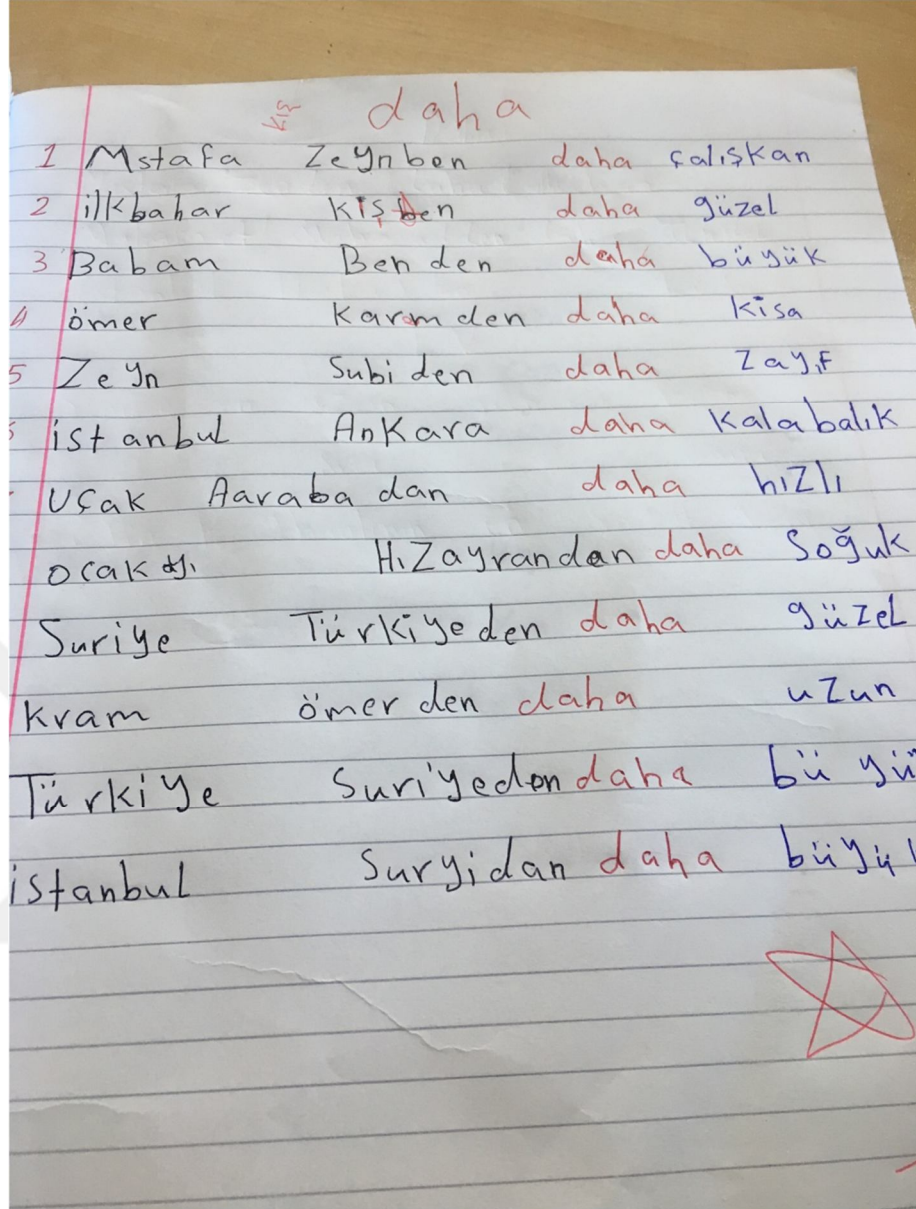 daha
1 Mstafa Zeynben daha çalışkan
2 ilkbahar kışben daha güzel
3 Babam Benden daha büyük
4 ömer karamden daha kisa
5 Zeyn Subiden daha zayıf
istanbul Ankara daha kalabalık
Uçak Aarabadan daha hızlı
ocak Hızayrandan daha Soğuk
Suriye Türkiyeden daha güzel
kram ömerden daha uzun
Türkiye Suriyeden daha büyü
istanbul Suryidan daha büyü